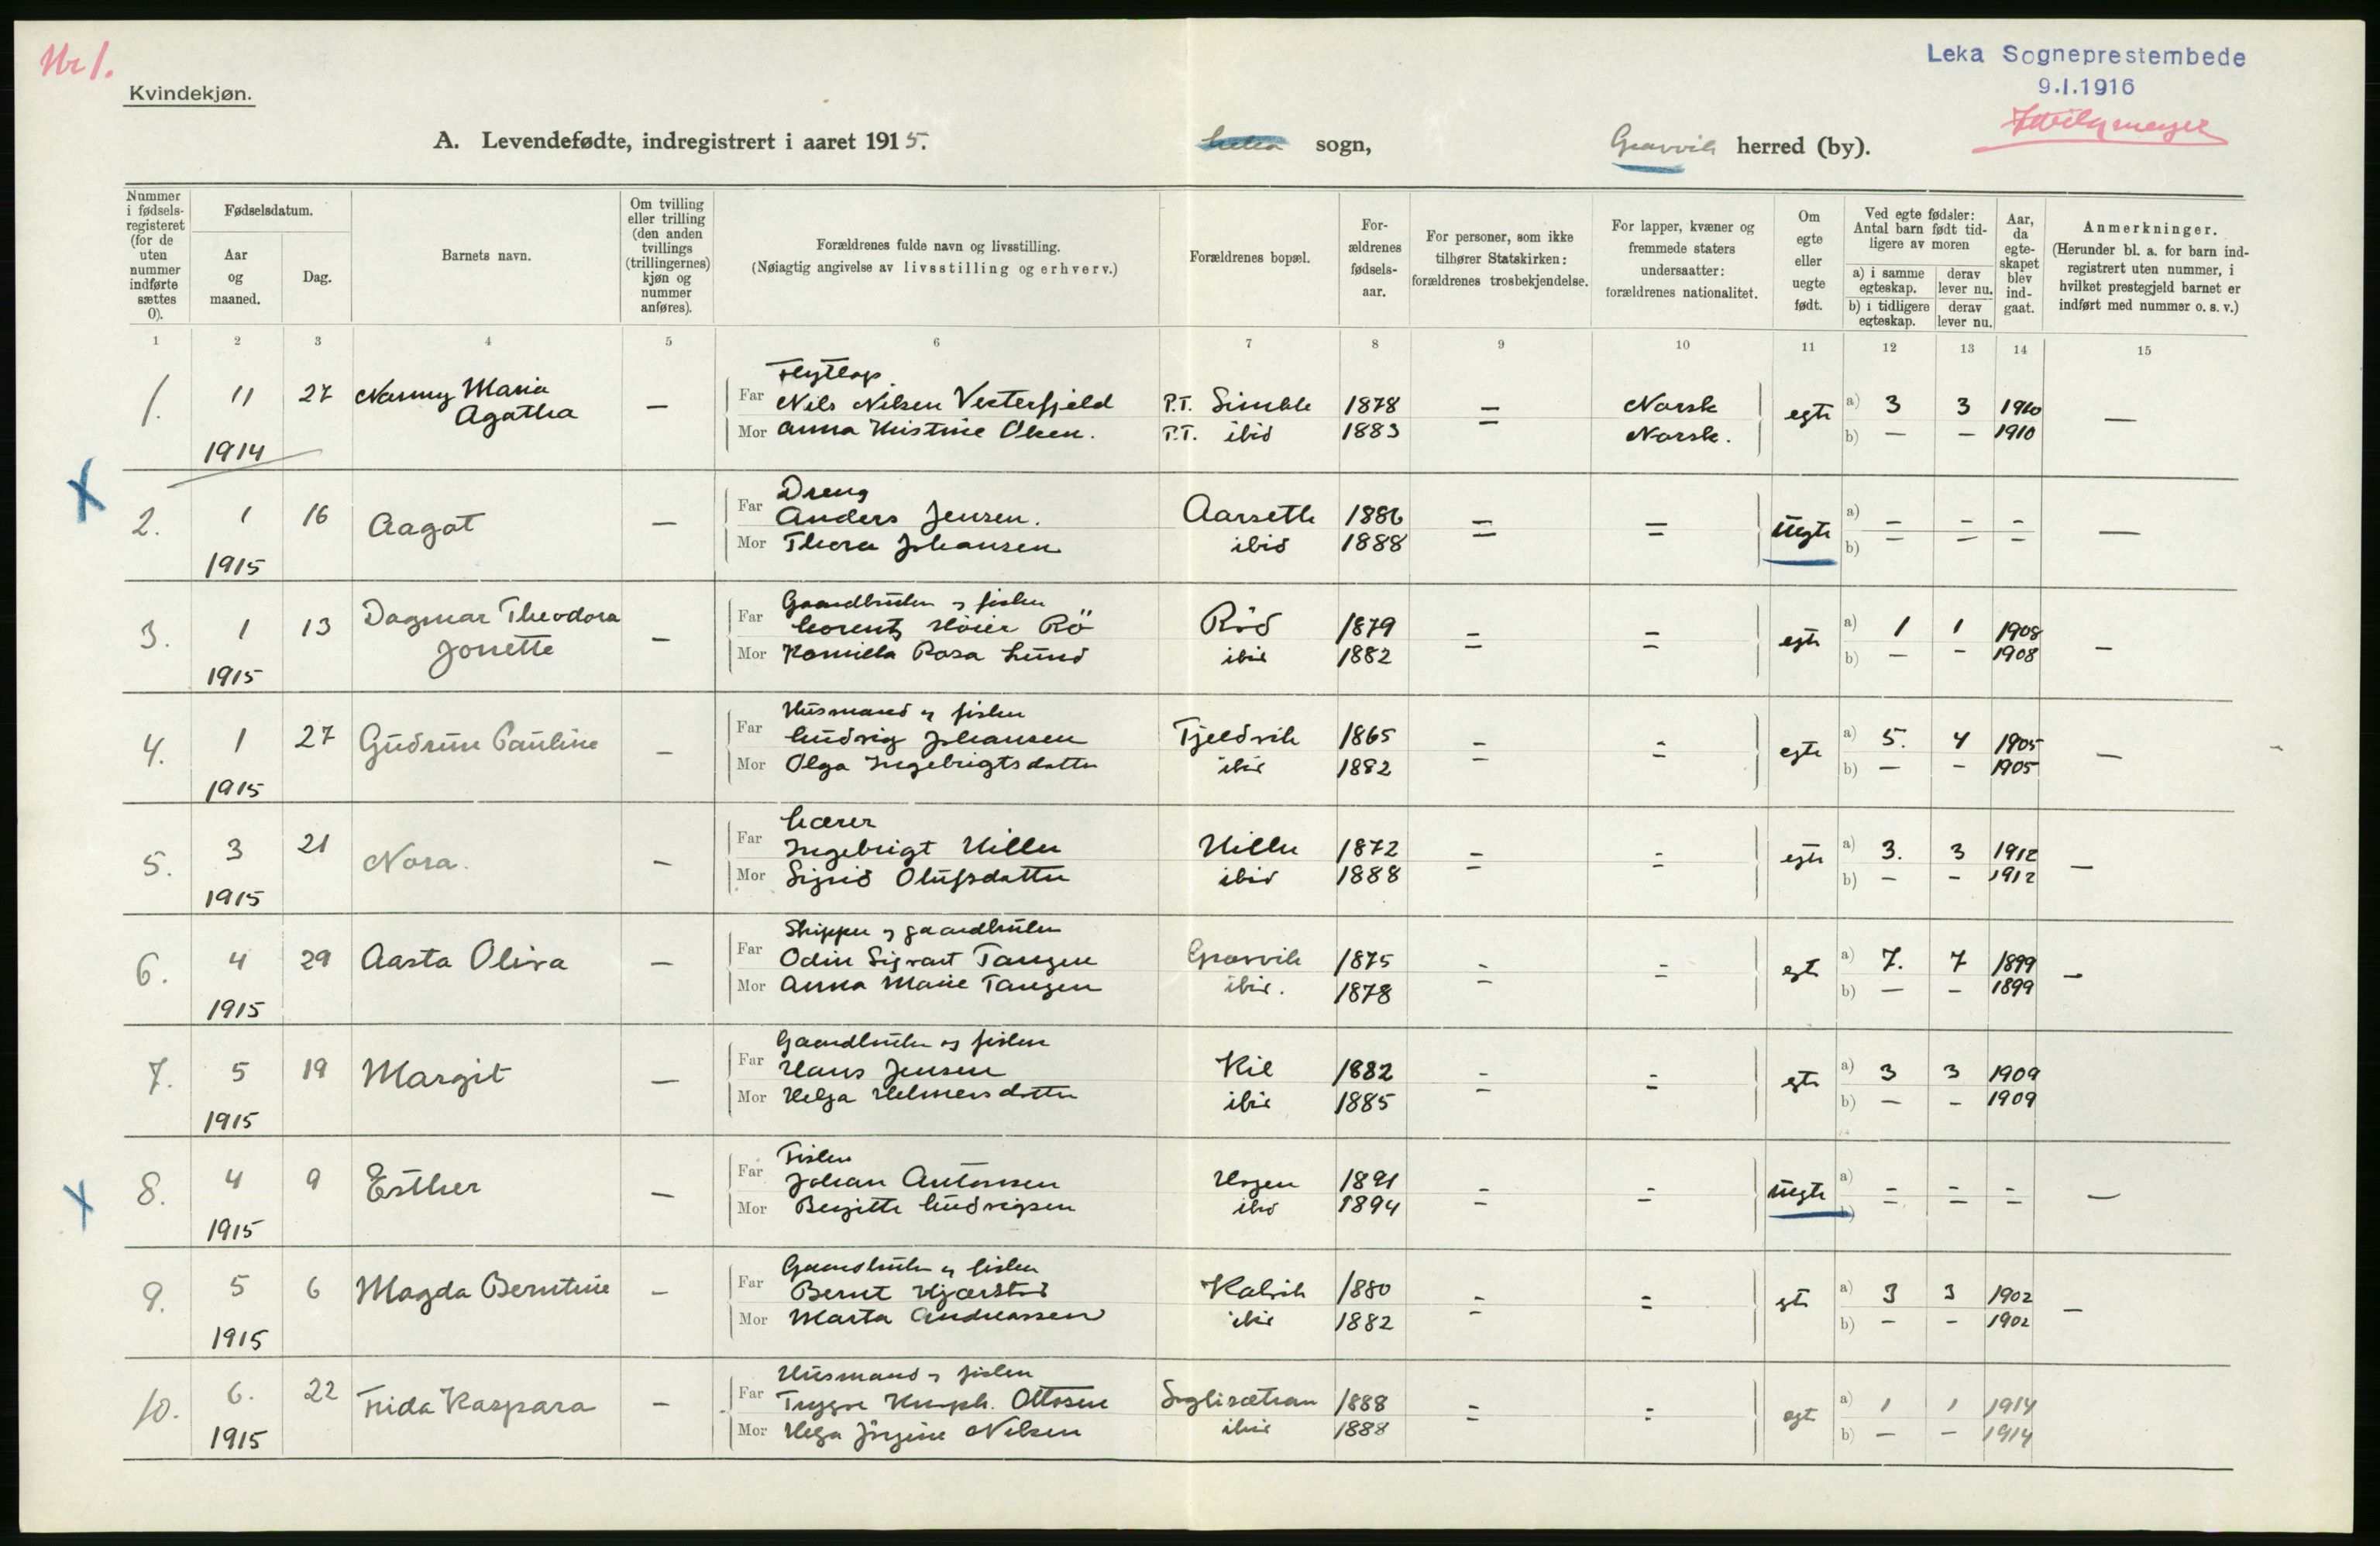 Nr 1.
Leka Sogneprestembede
9.1.1916
Kvindekjøn.
A. Levendefødte, indregistrert i aaret 1915. Leka sogn, Gravvik herred (by).
Nummer i fødselsregisteret (for de uten nummer indførte sættes 0).
Fødselsdatum.
Aar og maaned.
Dag.
Barnets navn.
Om tvilling eller trilling (den anden tvillings (trillingernes) kjøn og nummer anføres).
Forældrenes fulde navn og livsstilling.
(Nøiagtig angivelse av livsstilling og erhverv.)
Forældrenes bopæl.
Forældrenes fødselsaar.
For personer, som ikke tilhører Statskirken: forældrenes trosbekjendelse.
For lapper, kvæner og fremmede staters undersaatter: forældrenes nationalitet.
Om egte eller uegte født.
Ved egte fødsler: Antal barn født tidligere av moren
a) i samme egteskap. derav lever nu.
b) i tidligere egteskap. derav lever nu.
Aar, da egteskapet blev indgaat.
Anmerkninger.
(Herunder bl. a. for barn indregistrert uten nummer, i hvilket prestegjeld barnet er indført med nummer o. s. v.)
1 2 3 4 5 6 7 8 9 10 11 12 13 14 15
Flytlap
1. 11 27 Nanny Maria — Far Nils Nilsen Vesterfjeld P.T. Simle 1878 = Norsk egte a) 3 3 1910 —
Agatha Mor Anna Kristine Olsen. P.T. ibid 1883 Norsk. b) — — 1910
1914
Dreng
2. 1 16 Aagot — Far Anders Jensen. Aarseth 1886 = = uegte a) = = = —
Mor Thora Johansen ibid 1888 b)
1915
Gaardbruker og fisker
3. 1 13 Dagmar Theodora — Far Lorents Høier Rö Röd 1879 = = egte a) 1 1 1908 —
Jonette Mor Kamilla Rosa Lund ibid 1882 b) — — 1908
1915
Husmand og fisker
4. 1 27 Gudrun Pauline — Far Ludvig Johansen Tjeldvik 1865 = = egte a) 5. 4 1905 —
Mor Olga Ingebrigtsdatter ibid 1882 b) — — 1905
1915
Lærer
5. 3 21 Nora. — Far Ingebrigt Hiller Hiller 1872 = = egte a) 3. 3 1912 —
Mor Sigrid Olufsdatter ibid 1888 b) — — 1912
1915
Skipper og gaardbruker
6. 4 29 Aasta Oliva — Far Odin Sigvart Tangen Gravvik 1875 = = egte a) 7. 7 1899 —
Mor Anna Marie Tangen ibid. 1878 b) — — 1899
1915
Gaardbruker og fisker
7. 5 19 Margit — Far Hans Jensen Kil 1882 = = egte a) 3 3 1909
Mor Helga Helmersdatter ibid 1885 b) — — 1909
1915
Fisker
8. 4 9 Esther — Far Johan Antonsen 1891 = = uegte a) = = = —
Mor Bergitte Ludvigsen ibid 1894 b)
1915
Gaardbruker og fisker
9. 5 6 Magda Berntine — Far Bernt Kalvik 1880 = = egte a) 3 3 1902 —
Mor Marta Andreassen ibid 1882 b) — — 1902
1915
Husmand og fisker
10. 6. 22 Frida Kaspara — Far Trygve Ottosen 1888 = = egte a) 1 1 1914
Mor Helga Jörgine Nilsen ibid 1888 b) — — 1914
1915